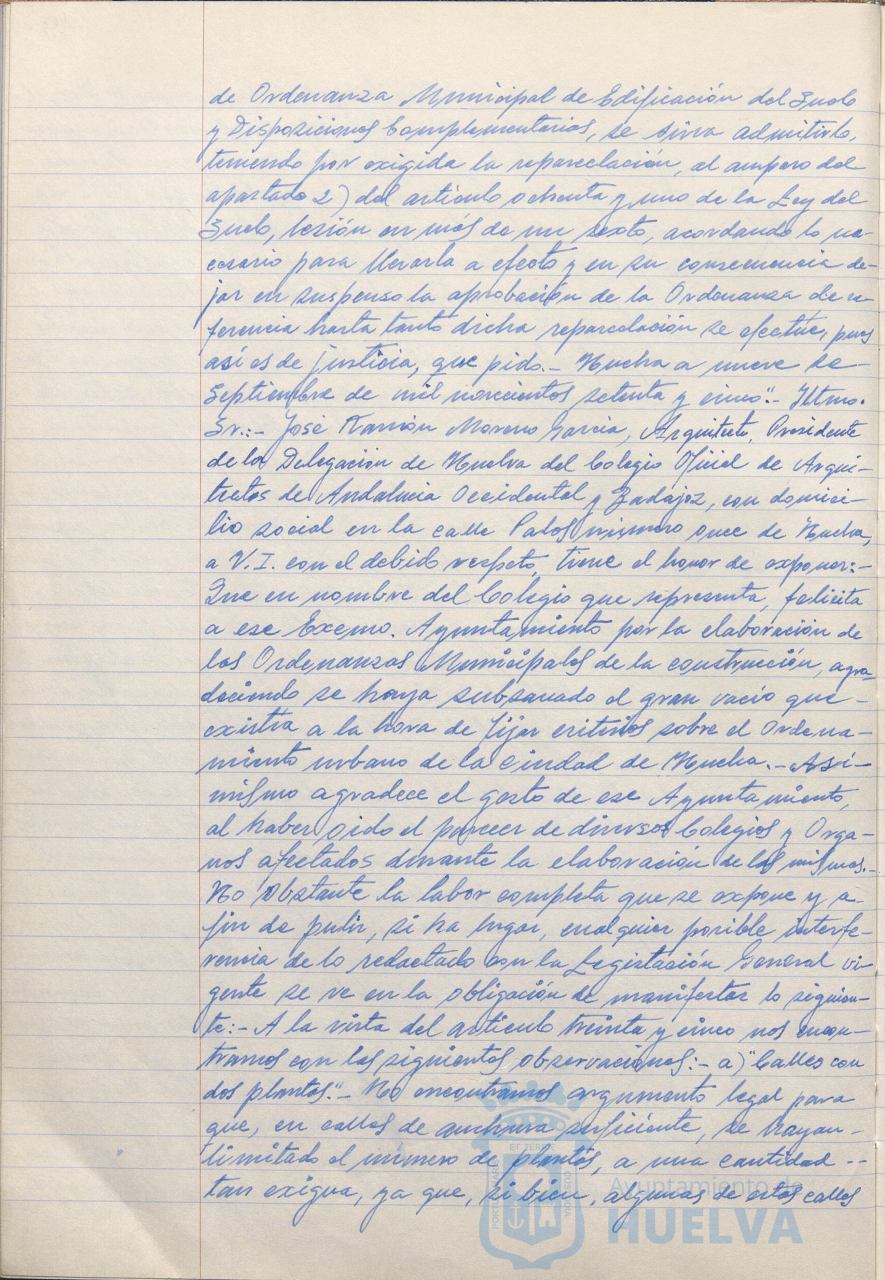 de Ordenanza Municipal de Edificación del Suelo
y Disposiciones Complementarias, se sirva admitirlo,
teniendo por exigida la reparcelación, al amparo del
apartado 2) del artículo ochenta y uno de la Ley del
Suelo, lesión en más de un sexto, acordando lo ne-
cesario para llevarla a efecto y en su consecuencia de-
jar en suspenso la aprobación de la Ordenanza de re-
ferencia hasta tanto dicha reparcelación se efectúe, pues
así es de justicia, que pido.- Huelva a nueve de
Septiembre de mil novecientos setenta y cinco".- Iltmo.
Sr.:- José Ramón Moreno García, Arquitecto, Presidente
de la Delegación de Huelva del Colegio Oficial de Arqui-
tectos de Andalucía Occidental y Badajoz, con domici-
lio social en la calle Palos número once de Huelva,
a V.I. con el debido respeto, tiene el honor de exponer:-
Que en nombre del Colegio que representa, felicita
a ese Excmo. Ayuntamiento por la elaboración de
las Ordenanzas Municipales de la construcción, agra-
deciendo se haya subsanado el gran vacío que
existía a la hora de fijar criterios sobre el Ordena-
miento urbano de la Ciudad de Huelva.- Así-
mismo agradece el gesto de ese Ayuntamiento,
al haber oído el parecer de diversos Colegios y Orga-
nos afectados durante la elaboración de las mismas.-
No obstante la labor completa que se expone y a
fin de pulir, si ha lugar, cualquier posible interfe-
rencia de lo redactado con la Legislación General vi-
gente se ve en la obligación de manifestar lo siguien-
te:- A la vista del artículo treinta y cinco nos encon-
tramos con las siguientes observaciones:- a) "Calles con
dos plantas".- No encontramos argumento legal para
que, en calles de anchura suficiente, se hayan
limitado el número de plantas, a una cantidad --
tan exigua, ya que, si bien, algunas de estas calles
Ayuntamiento de
HUELVA